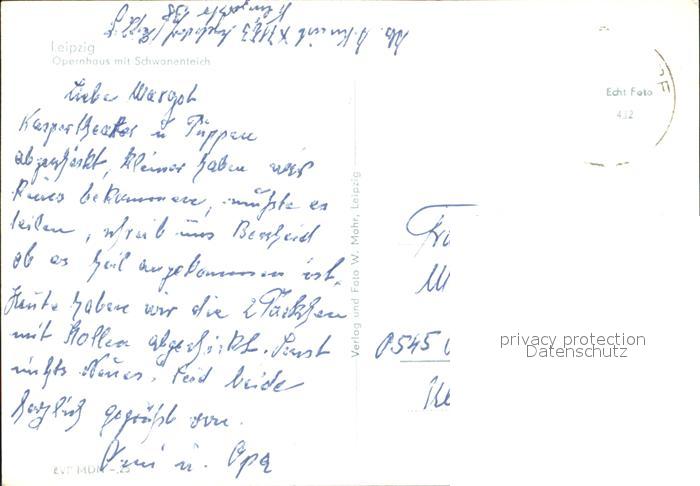 Leipzig
Opernhaus mit Schwanenteich
Liebe Margot
Kaspertheater u Puppen
abgeschickt, kleiner haben wir
keines bekommen, müßte es
teilen, schreib uns Bescheid
ob es heil angekommen ist.
Heute haben wir die 2 Päckchen
mit Stollen abgeschickt. Sonst
nichts Neues. Seid beide
herzlich gegrüßt von.
Omi u. Opa
Verlag und Foto W. Mohr, Leipzig
Echt Foto
432
0545
privacy protection
Datenschutz